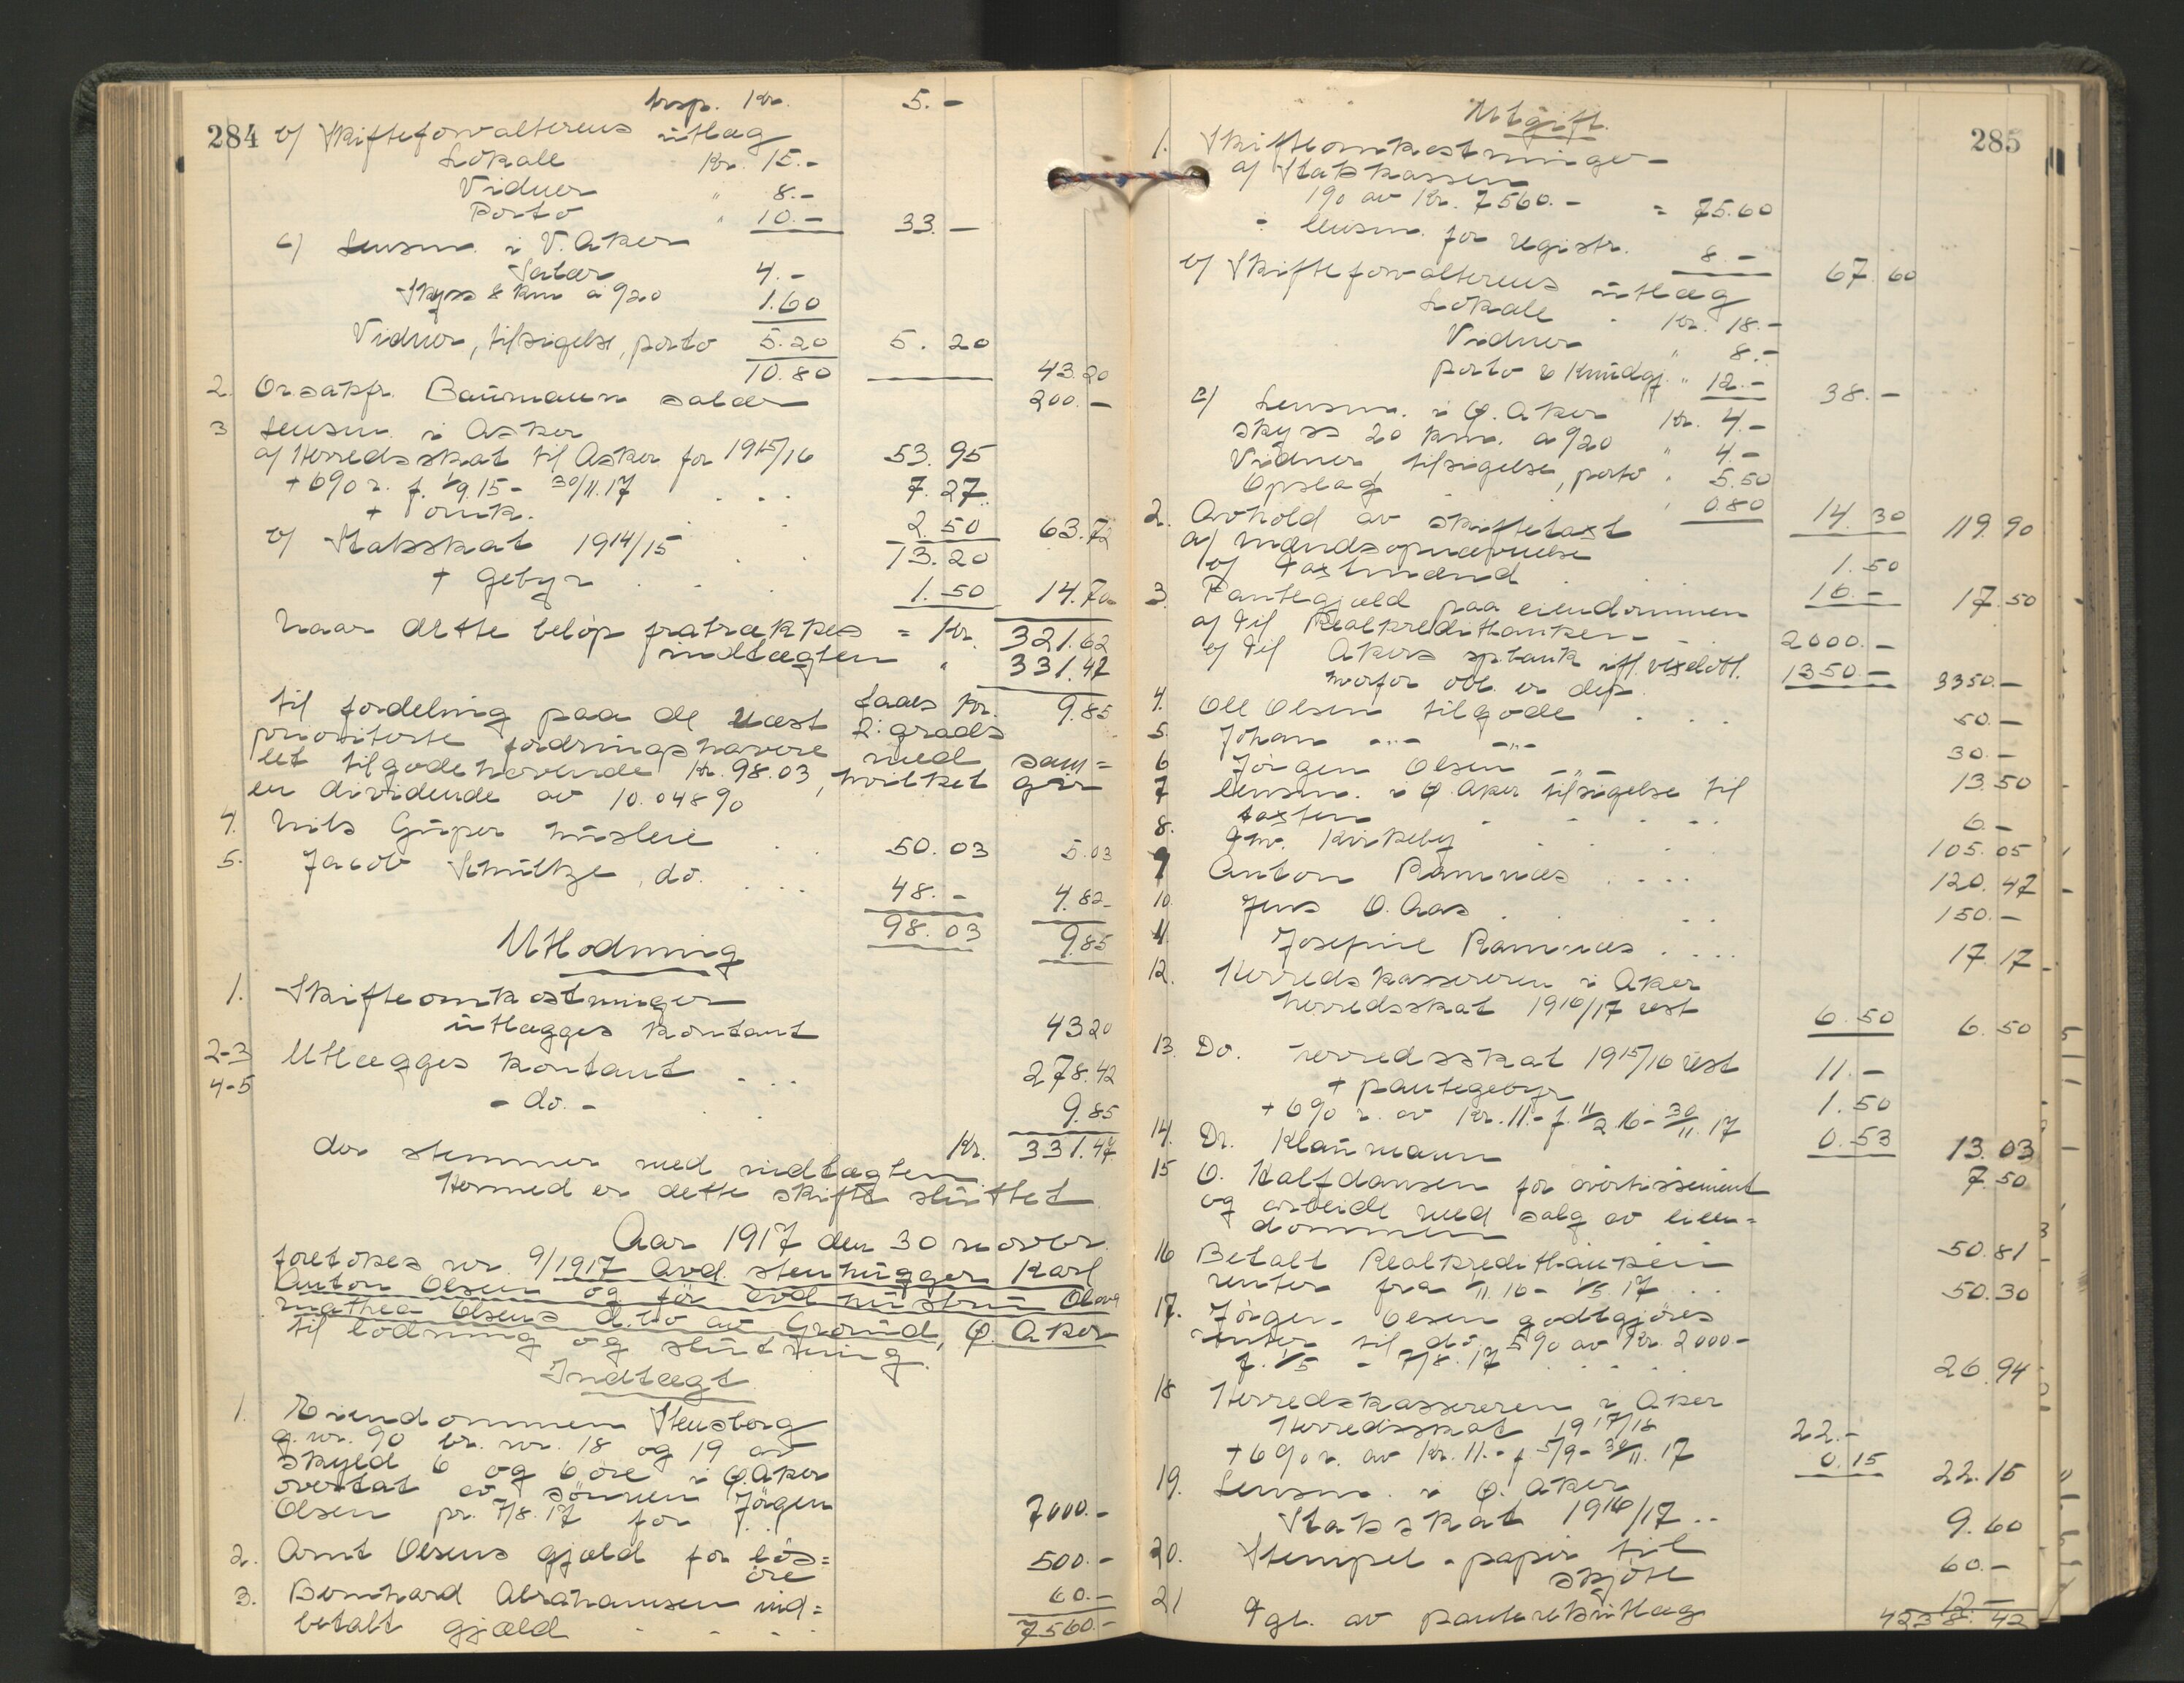 284
trsp. Kr. 5.-
b/ Skifteforvalterens utlæg
Lokale Kr. 15.-
Vidner " 8.-
Porto " 10.- 33.-
c/ Lensm. i V. Aker
Salær 4.-
Skyss 8 km a 0/20 1.60
Vidner, tilsigelse, porto 5.20 5.20
10.80 43.20
2. Orsakfr. Baumann salær 200.-
3 Lensm. i Asker
a/ Herredsskat til Asker for 1915/16 53.95
+ 6% r. f. 1/9.15 - 30/11.17 . . . 7.27
+ omk. 2.50 63.72
b/ Statsskat 1914/15 . . 13.20
+ gebyr . . . 1.50 14.70
Naar dette beløp fratrækkes = Kr. 321.62
indtægten " 331.47
faaes Kr. 9.85
til fordeling paa de næst 2: grads
prioriterte fordringshavere med sam=
let tilgodehavende Kr. 98.03, hvilket gir
en dividende av 10.048%
4. Nils Guper husleie . . 50.03 5.03
5. Jacob Schultze, do. . . . 48.- 4.82
98.03 9.85
Utlodning
1. Skifteomkostninger
utlægges kontant 43 20
2-3 Utlægges kontant . . . 278.42
4-5 - do. - . . 9.85
Kr. 331.47
der stemmer med indtægten
Hermed er dette skifte sluttet
Aar 1917 den 30 novbr.
foretokes nr. 9/1917 Avd. stenhugger Karl
Anton Olsen og før avd. hustru Olava
Mathea Olsens d.bo av Grorud, Ø. Aker
til lodning og slutning.
Indtægt
1. Eiendommen Stensborg
g. nr. 90 br. nr. 18 og 19 av
skyld 6 og 6 øre i Ø. Aker
overtat av sønnen Jørgen
Olsen pr. 7/8.17 for . . 7000.-
2. Arnt Olsens gjæld for løs=
øre 500.-
3. Bernhard Abrahamsen ind=
betalt gjæld . . . . 60.-
7560.-
285
Utgift.
1. Skifteomkostninger
a/ Statskassen
1% av Kr. 7560.- = 75.60
÷ lensm. for registr. 8.- 67.60
b/ Skifteforvalterens utlæg
Lokale . Kr. 18.-
Vidner " 8.-
porto & kundgj. " 12.- 38.-
c/ Lensm. i Ø. Aker Kr. 4.-
skyss 20 km. a 0/20 " 4.-
Vidner, tilsigelse, porto " 5.50
Opslag . . " 0.80 14.30 119.90
2. Avhold av skiftetaxt
a/ Mændsopnævnelse 1.50
b/ Taxtmænd . . 16.- 17.50
3. Pantegjæld paa eiendommen
a/ til Realkreditbanken . . 2000.-
b/ til Akers sp.bank ifl. vexelobl.
hvorfor obl. er dep. 1350.- 3350.-
4. Ole Olsen tilgode . . . 50.-
5. Johan -"- -"- 30.-
6 Jørgen Olsen -"- 13.50
7 lensm. i Ø. Aker tilsigelse til
taxten . . . . 6.-
8. Gw. Kirkeby . . . 105.05
9 Anton Ramnæs . . . . 120.47
10. Jens O. Aas . . . . 150.-
11. Josefine Ramnæs . . . . 17.17
12. Herredskassereren i Aker
herredsskat 1916/17 rest 6.50 6.50
13. Do. herredsskat 1915/16 rest 11.-
+ pantegebyr 1.50
+ 6% r. av Kr. 11.- f. 11/2 16 - 30/11. 17 0.53 13.03
14. Dr. Klaumann 7.50
15 O. Halfdansen for avertissement
og arbeide med salg av eien=
dommen 50.81
16 Betalt Realkreditbanken
renter fra 1/11.16 - 1/5. 17 . . . 50.30
17. Jørgen Olsen godtgjøres
renter til do. 5% av Kr. 2000-
f. 1/5 - 7/8. 17 . . . . 26.94
18 Herredskassereren i Aker
Herredsskat 1917/18 22.-
+ 6% r. av Kr. 11.- f. 5/9 - 30/11. 17 0.15 22.15
19. Lensm. i Ø. Aker
Statsskat 1916/17 . . 9.60
20. Stempel-papir til
skjøte 60.-
21 Tgl. av panterekvitlæg 12.-
4238.42